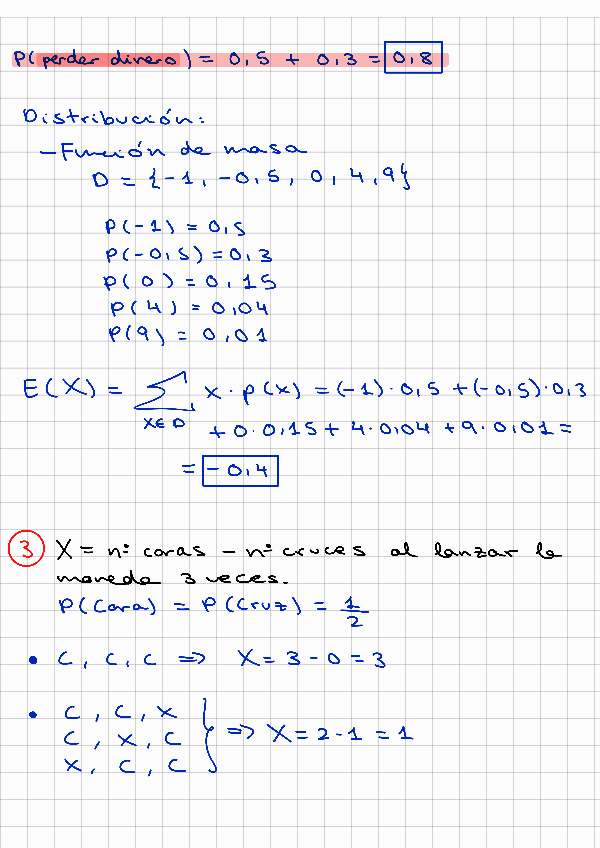 P(perder dinero) = 0,5 + 0,3 = 0,8
Distribución:
- Función de masa
D = {-1, -0,5, 0, 4, 9}
P(-1) = 0,5
P(-0,5) = 0,3
P(0) = 0,15
P(4) = 0,04
P(9) = 0,01
E(X) = ∑ x · p(x) = (-1) · 0,5 + (-0,5) · 0,3
x∈D
+ 0 · 0,15 + 4 · 0,04 + 9 · 0,01 =
= -0,4
3 X = nº caras - nº cruces al lanzar la
moneda 3 veces.
P(Cara) = P(Cruz) = 1/2
• C, C, C => X = 3 - 0 = 3
• C, C, X
C, X, C } => X = 2 - 1 = 1
X, C, C